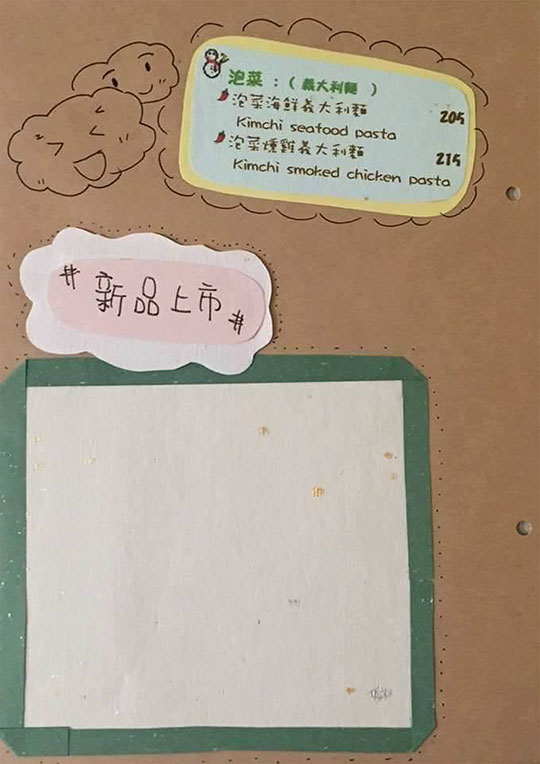 泡菜：( 義大利麵 )
泡菜海鮮義大利麵 205
Kimchi seafood pasta
泡菜燻雞義大利麵 215
Kimchi smoked chicken pasta
# 新品上市 #